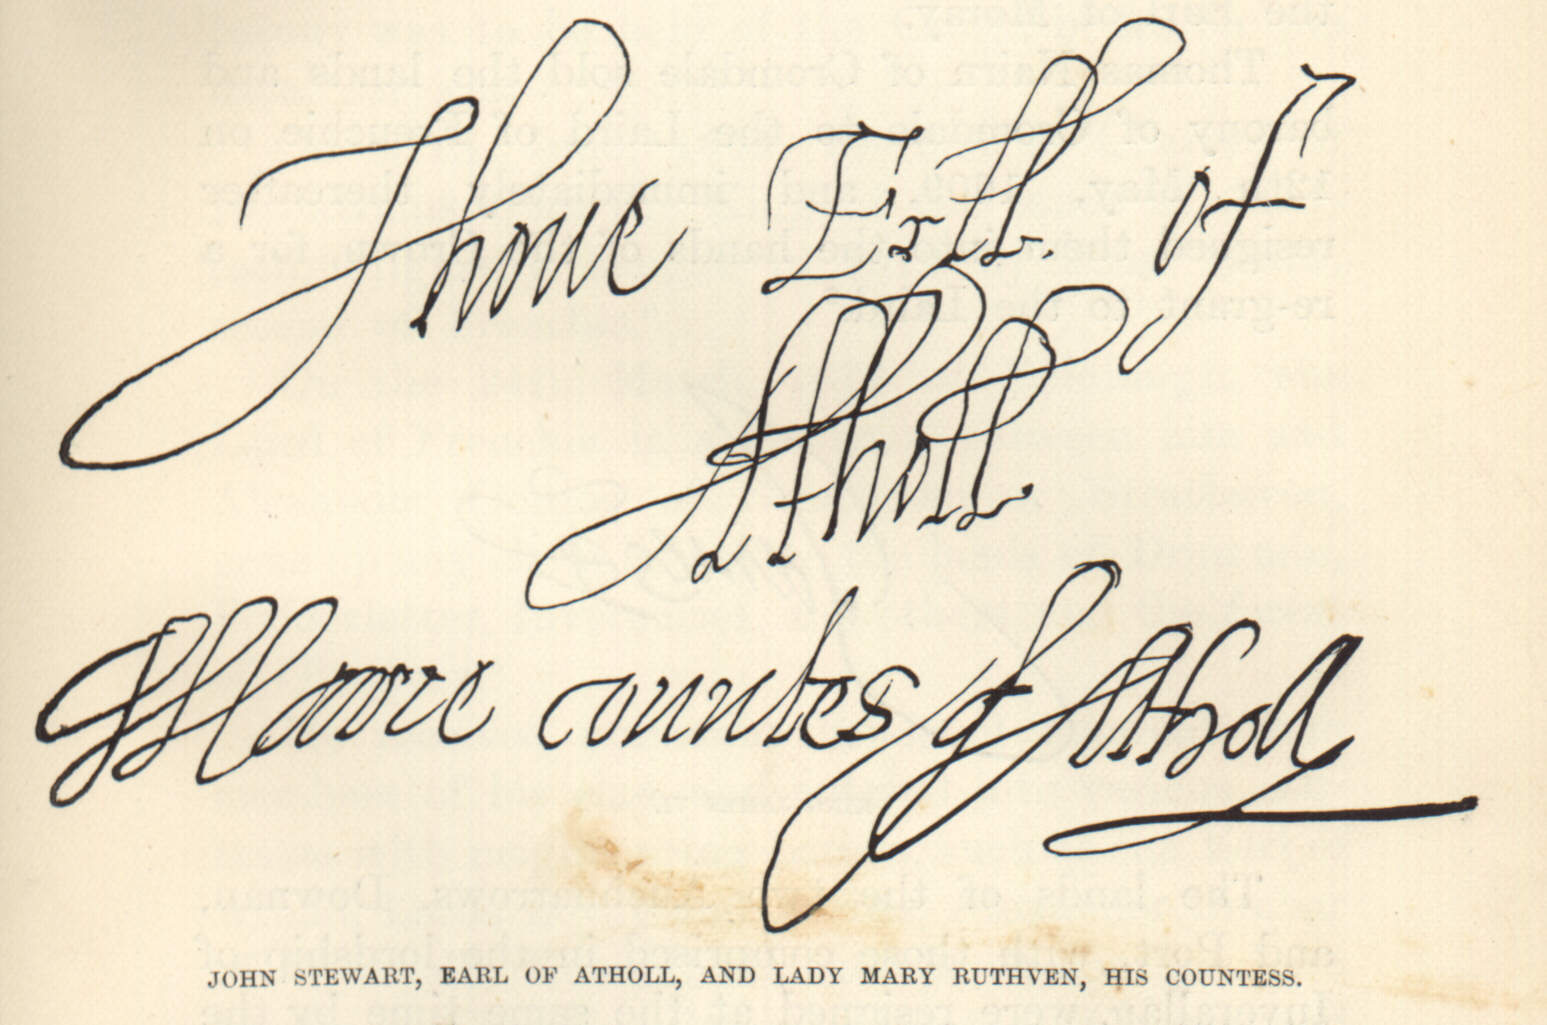 Jhone Erll. of
Atholl.
Marie countes of Atholl
JOHN STEWART, EARL OF ATHOLL, AND LADY MARY RUTHVEN, HIS COUNTESS.